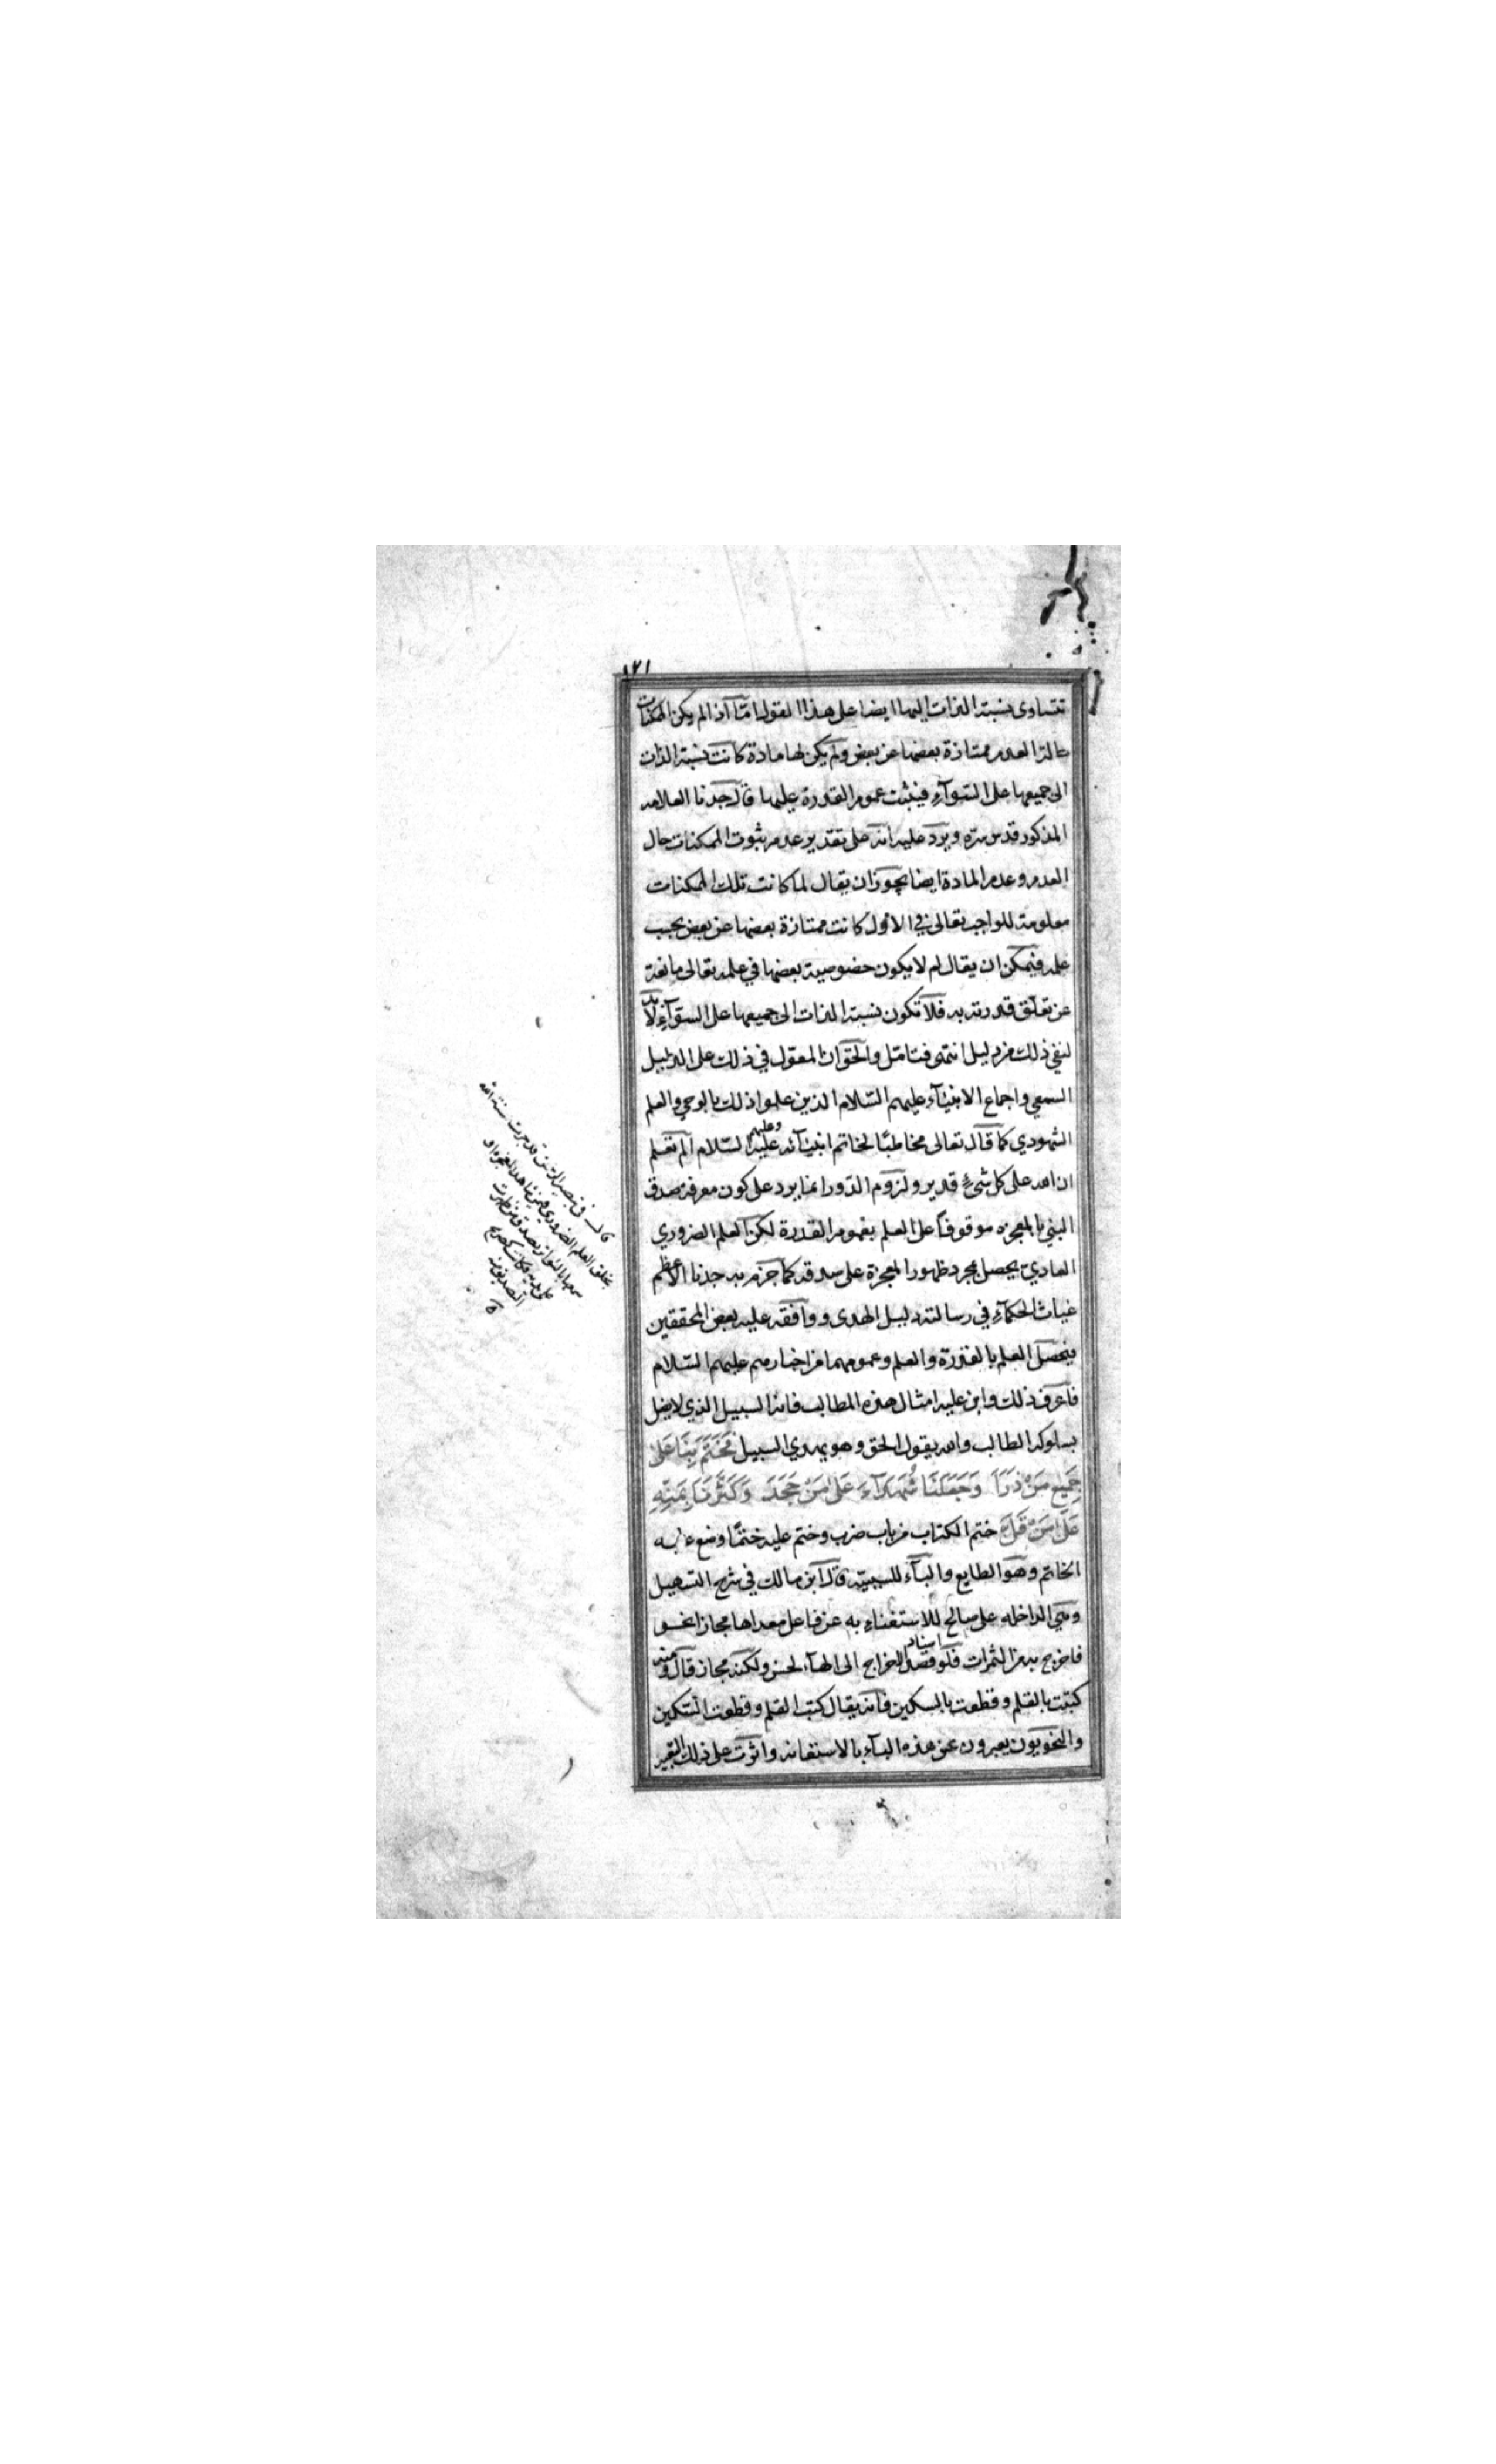 ١٢١
تتساوى نسبة الذات اليها ايضا على هذا القول امّا اذا لم يكن الممكنات
حالة العدم ممتازة بعضها عن بعض ولم يكن لها مادة كانت نسبة الذات
الى جميعها على السّوآء فيثبت عموم القدرة عليها قال جدنا العلامه
المذكور قدس سره ويرد عليه انه على تقدير عدم ثبوت الممكنات حال
العدم وعدم المادة ايضا يجوز ان يقال لما كانت تلك الممكنات
معلومة للواجب تعالى في الازل كانت ممتازة بعضها عن بعض بحسب
علمه فيمكن ان يقال لم لا يكون خصوصية بعضها في علمه تعالى مانعة
عن تعلّق قدرته به فلا تكون نسبة الذات الى جميعها على السوّآء لا بد
لنفي ذلك من دليل انتهى فتامّل والحق ان المعوّل في ذلك على الدليل
السمعي واجماع الانبيآء عليهم السّلام الذين علموا ذلك بالوحي والعلم
الشهودي كما قال تعالى مخاطبًا لخاتم انبيآئه عليه وعليهم السّلام الم تعلم
ان الله على كل شئ قدير ولزوم الدّور انما يرد على كون معرفة صدق
النبي بالمعجزه موقوفاً على العلم بعموم القدرة لكن العلم الضروري
العاديّ يحصل بمجرد ظهور المعجزة على صدقه كما جزم به جدنا الاعظم
غياث الحكمآء في رسالته دليل الهدى ووافقه عليه بعض المحققين
فيحصل العلم بالقدرة والعلم وعمومهما من اخبارهم عليهم السّلام
فاعرف ذلك وابن عليه امثال هذه المطالب فانه السبيل الذي لا يضل
بسلوكه الطالب والله يقول الحق وهو يهدي السبيل فَخَتَمَ بِنَا عَلىٰ
جَمِيعِ مَنْ ذَرَأَ وَجَعَلَنَا شُهَدَآءَ عَلىٰ مَنْ جَحَدَ وَكَثَّرَنَا بِمَنِّهِ
عَلىٰ مَنْ قَلَّ ختم الكتاب من باب ضرب وختم عليه ختمًا وضع عليه
الخاتم وهو الطابع والبآء للسببيّة قال ابن مالك في شرح التسهيل
وهي الداخله على صالح للاستغناء به عن فاعل معداها مجازا نحو
فاخرج به من الثمرات فلو قصد اسناد الاخراج الى الهآء لحسن ولكنه مجاز قال ومنه
كتبت بالقلم وقطعت بالسكين فانه يقال كتب القلم وقطعت السّكين
والنحويون يعبرون عن هذه البآء بالاستعانه واثرت على ذلك التعبير
قال في تبصير الرحمن قد جرت سنة الله
بخلق العلم الضروري